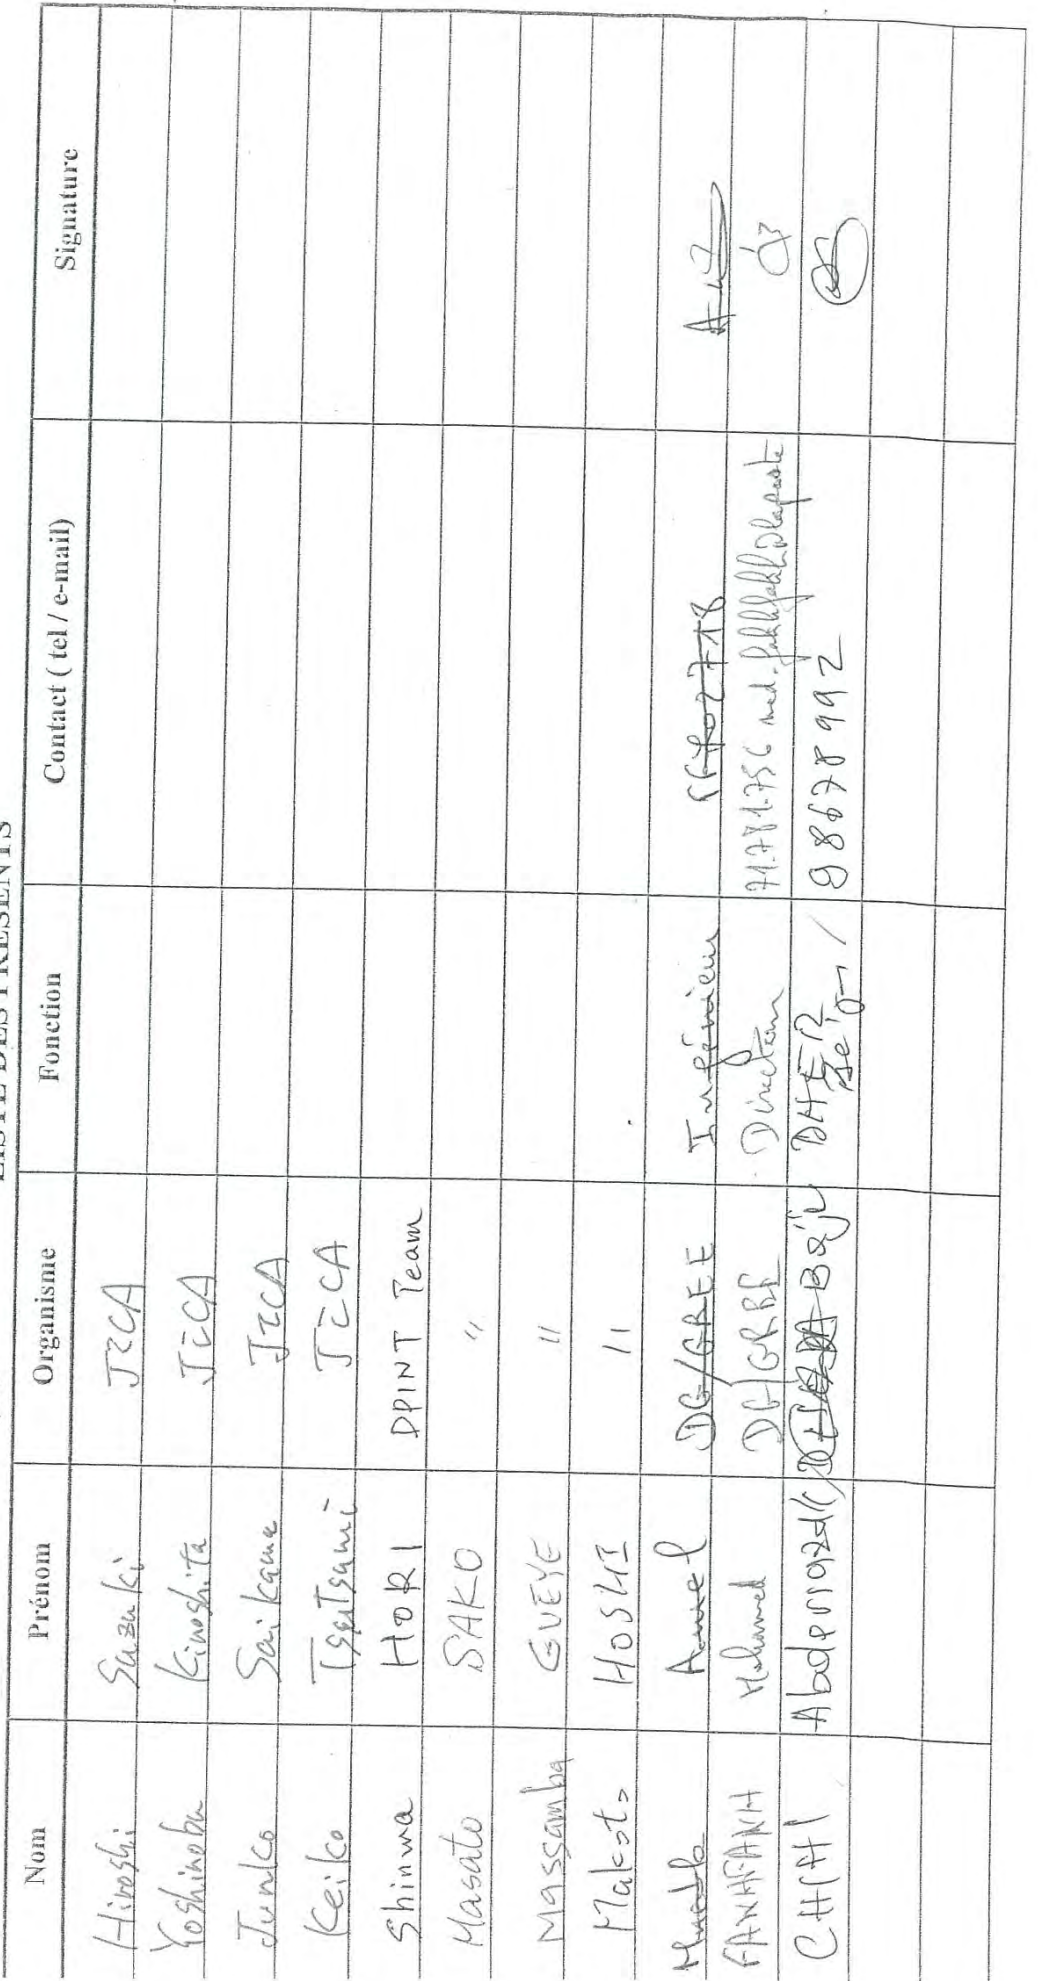 LISTE DES PRESENTS
Nom Prénom Organisme Fonction Contact ( tel / e-mail) Signature
Hiroshi Suzuki JICA
Yoshinobu Kinoshita JICA
Junko Saikawa JICA
Keiko Tsutsumi JICA
Shinwa HORI DPINT Team
Masato SAKO "
Massamba GUEYE "
Makoto HOSHI "
Amel DG/GREE Ingénieur
Mohammed DG/GRRE Directeur 71.781.756
CHIHI Abderrazak Béja 98678992